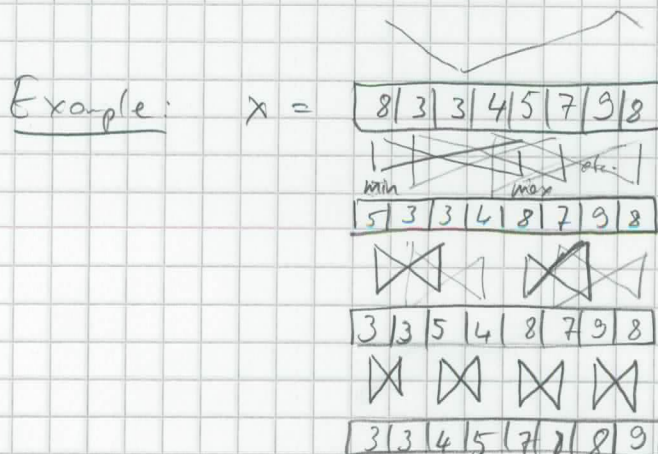 Example: x = 8 3 3 4 5 7 9 8
min max etc.
5 3 3 4 8 7 9 8
3 3 5 4 8 7 9 8
3 3 4 5 7 8 8 9